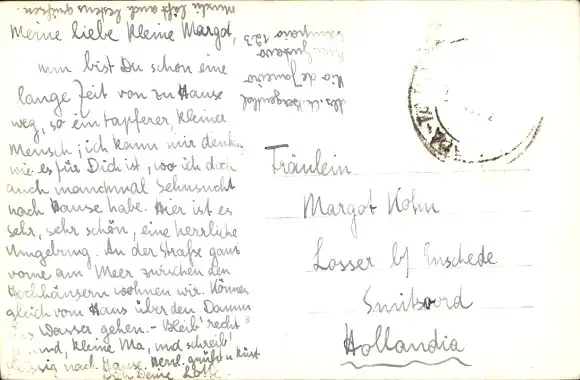 Meine liebe kleine Margot,
nun bist Du schon eine
lange Zeit von zu Hause
weg, so ein tapferer, kleiner
Mensch; ich kann mir denken
wie es für Dich ist, wo ich doch
auch manchmal Sehnsucht
nach Hause habe. Hier ist es
sehr, sehr schön, eine herrliche
Umgebung. An der Straße ganz
vorne am Meer zwischen den
Hochhäusern wohnen wir. Können
gleich vom Haus über den Damm
ins Wasser gehen. - Bleib' recht
kleine Ma, und schreib'
nach Hause. Herzl. grüßt u. küsst
Dich Deine Lotte.
läßt auch bestens grüßen.
Rio de Janeiro
Rua Gustavo
Sampaio 123
Fräulein
Margot Kohn
Losser b/ Enschede
Smitsoord
Hollandia